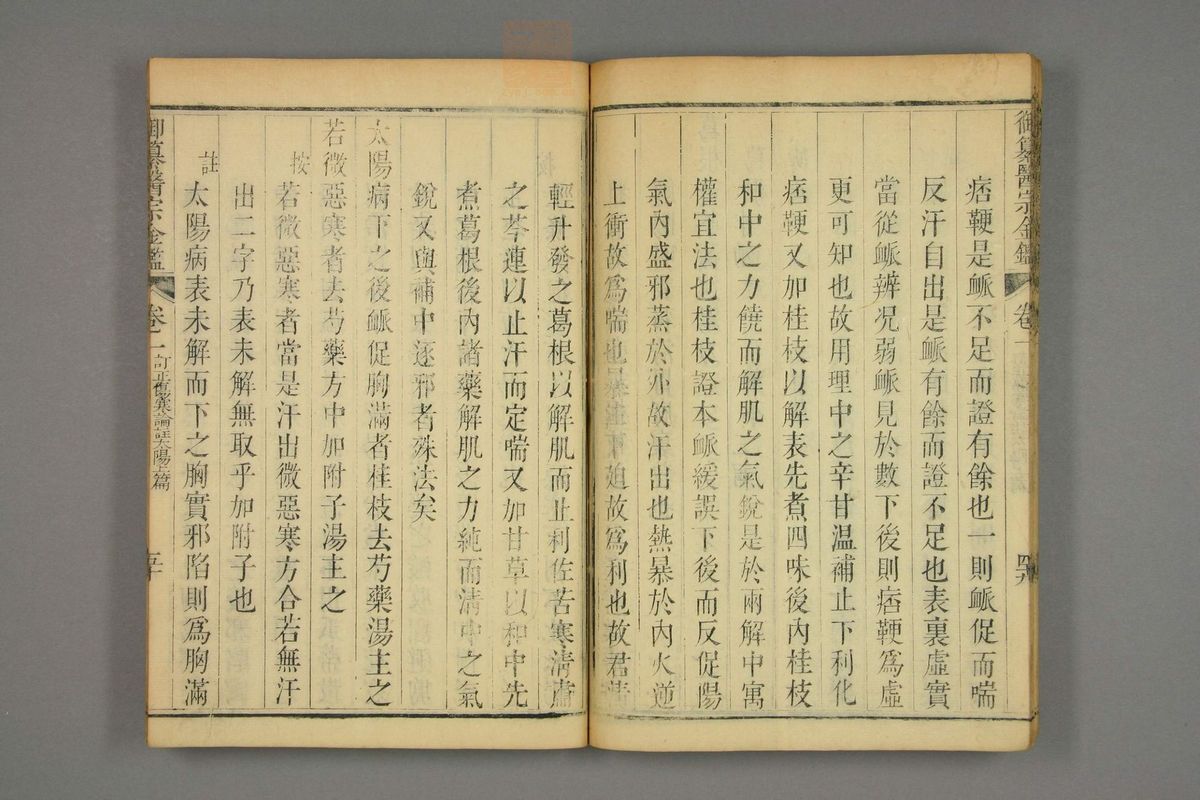 御纂醫宗金鑑 卷
痞鞕是脈不足而證有餘也一則脈促而喘
反汗自出是脈有餘而證不足也表裏虛實
當從脈辨况弱脈見於數下後則痞鞕為虛
更可知也故用理中之辛甘温補止下利化
痞鞕又加桂枝以解表先煮四味後內桂枝
和中之力饒而解肌之氣銳是於兩解中寓
權宜法也桂枝證本脈緩誤下後而反促陽
氣內盛邪蒸於外故汗出也熱暴於內火逆
上衝故為喘也暴注下迫故為利也故君清
輕升發之葛根以解肌而止利佐苦寒清肅
之芩連以止汗而定喘又加甘草以和中先
煮葛根後內諸藥解肌之力純而清中之氣
銳又與補中逐邪者殊法矣
太陽病下之後脈促胸滿者桂枝去芍藥湯主之
若微惡寒者去芍藥方中加附子湯主之
按 若微惡寒者當是汗出微惡寒方合若無汗
出二字乃表未解無取乎加附子也
註 太陽病表未解而下之胸實邪陷則為胸滿
御纂醫宗金鑑 卷二 訂正傷寒論註太陽上篇 五十